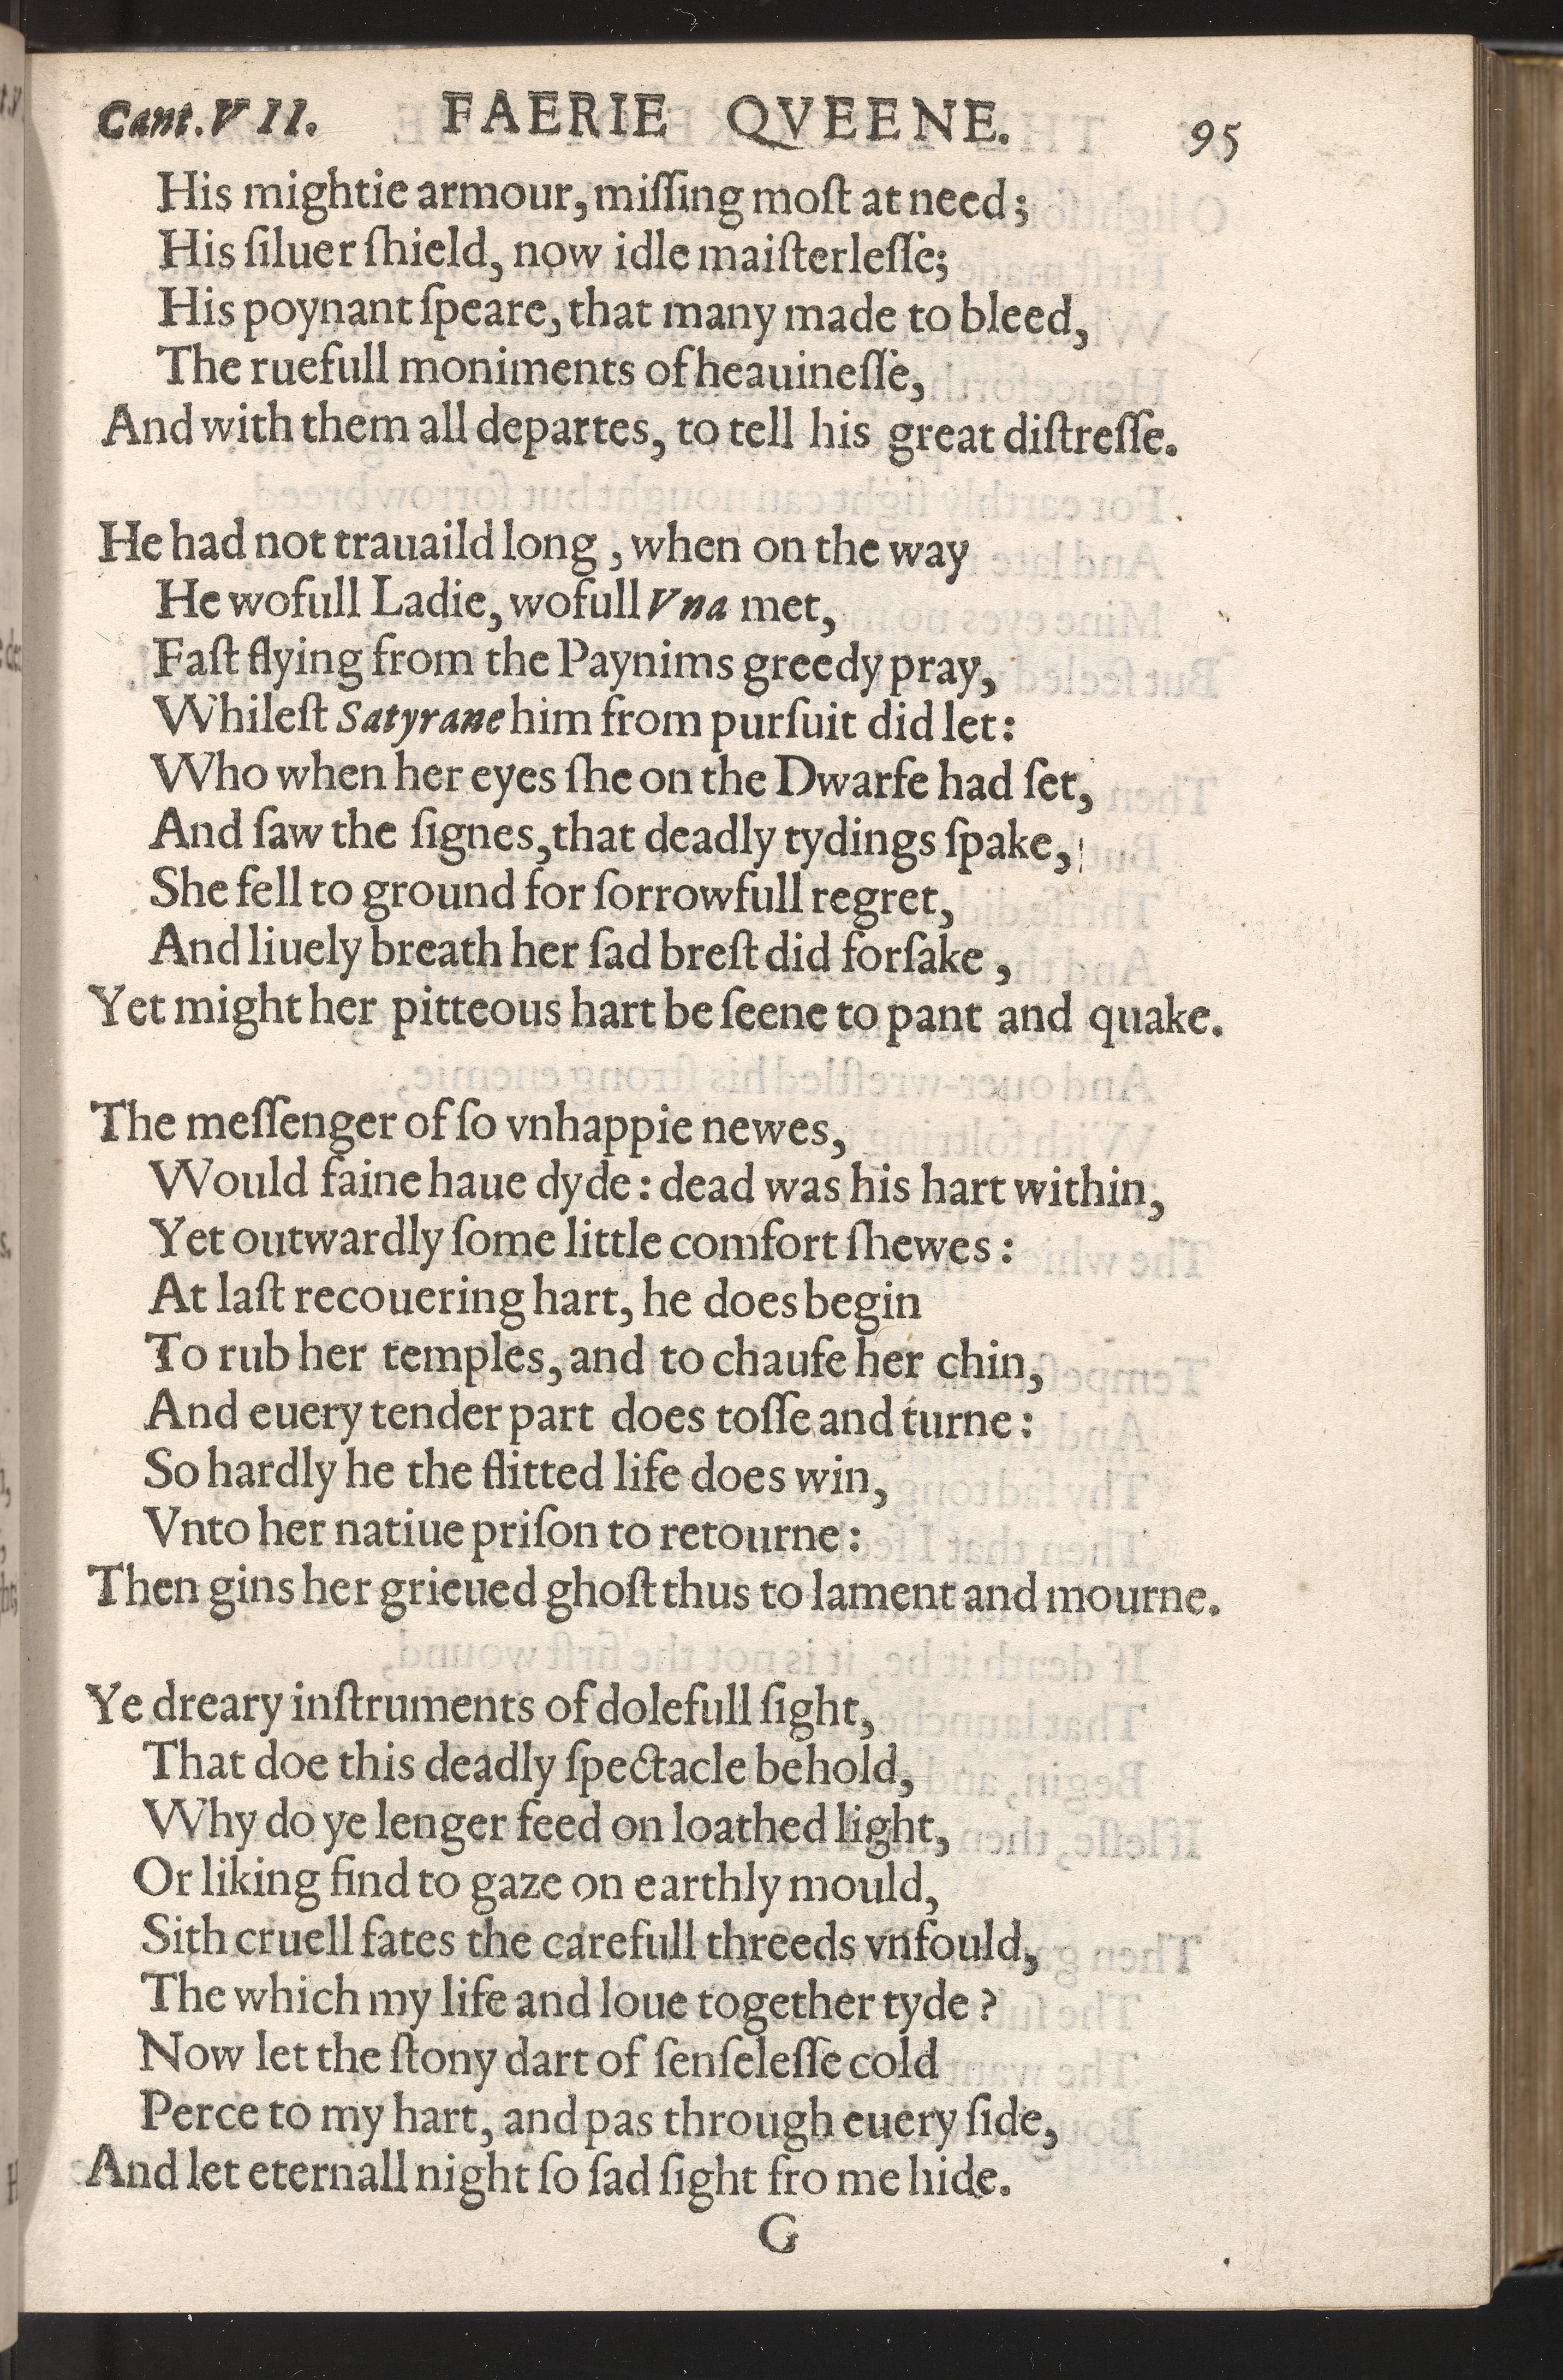 Cant. VII. FAERIE QVEENE. 95
His mightie armour, miſſing moſt at need;
His ſiluer ſhield, now idle maiſterleſſe;
His poynant ſpeare, that many made to bleed,
The ruefull moniments of heauineſſe,
And with them all departes, to tell his great diſtreſſe.
He had not trauaild long, when on the way
He wofull Ladie, wofull Vna met,
Faſt flying from the Paynims greedy pray,
Whileſt Satyrane him from purſuit did let:
Who when her eyes ſhe on the Dwarfe had ſet,
And ſaw the ſignes, that deadly tydings ſpake,
She fell to ground for ſorrowfull regret,
And liuely breath her ſad breſt did forſake,
Yet might her pitteous hart be ſeene to pant and quake.
The meſſenger of ſo vnhappie newes,
Would faine haue dyde: dead was his hart within,
Yet outwardly ſome little comfort ſhewes:
At laſt recouering hart, he does begin
To rub her temples, and to chaufe her chin,
And euery tender part does toſſe and turne:
So hardly he the flitted life does win,
Vnto her natiue priſon to retourne:
Then gins her grieued ghoſt thus to lament and mourne.
Ye dreary inſtruments of dolefull ſight,
That doe this deadly ſpectacle behold,
Why do ye lenger feed on loathed light,
Or liking find to gaze on earthly mould,
Sith cruell fates the carefull threeds vnfould,
The which my life and loue together tyde?
Now let the ſtony dart of ſenſeleſſe cold
Perce to my hart, and pas through euery ſide,
And let eternall night ſo ſad ſight fro me hide.
G